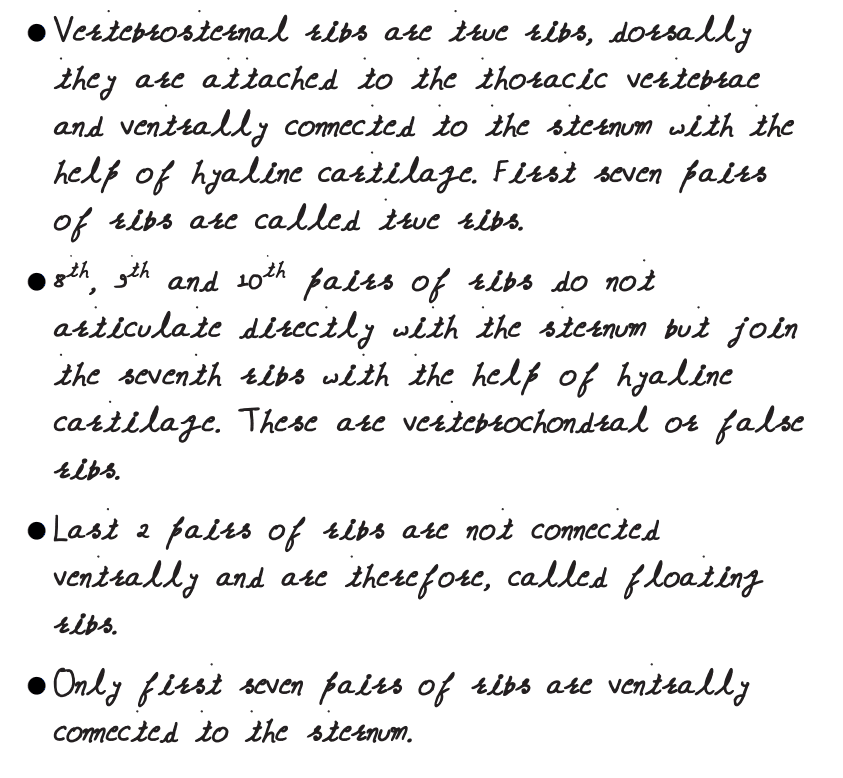 ● Vertebrosternal ribs are true ribs, dorsally
they are attached to the thoracic vertebrae
and ventrally connected to the sternum with the
help of hyaline cartilage. First seven pairs
of ribs are called true ribs.
● 8th, 9th and 10th pairs of ribs do not
articulate directly with the sternum but join
the seventh ribs with the help of hyaline
cartilage. These are vertebrochondral or false
ribs.
● Last 2 pairs of ribs are not connected
ventrally and are therefore, called floating
ribs.
● Only first seven pairs of ribs are ventrally
connected to the sternum.